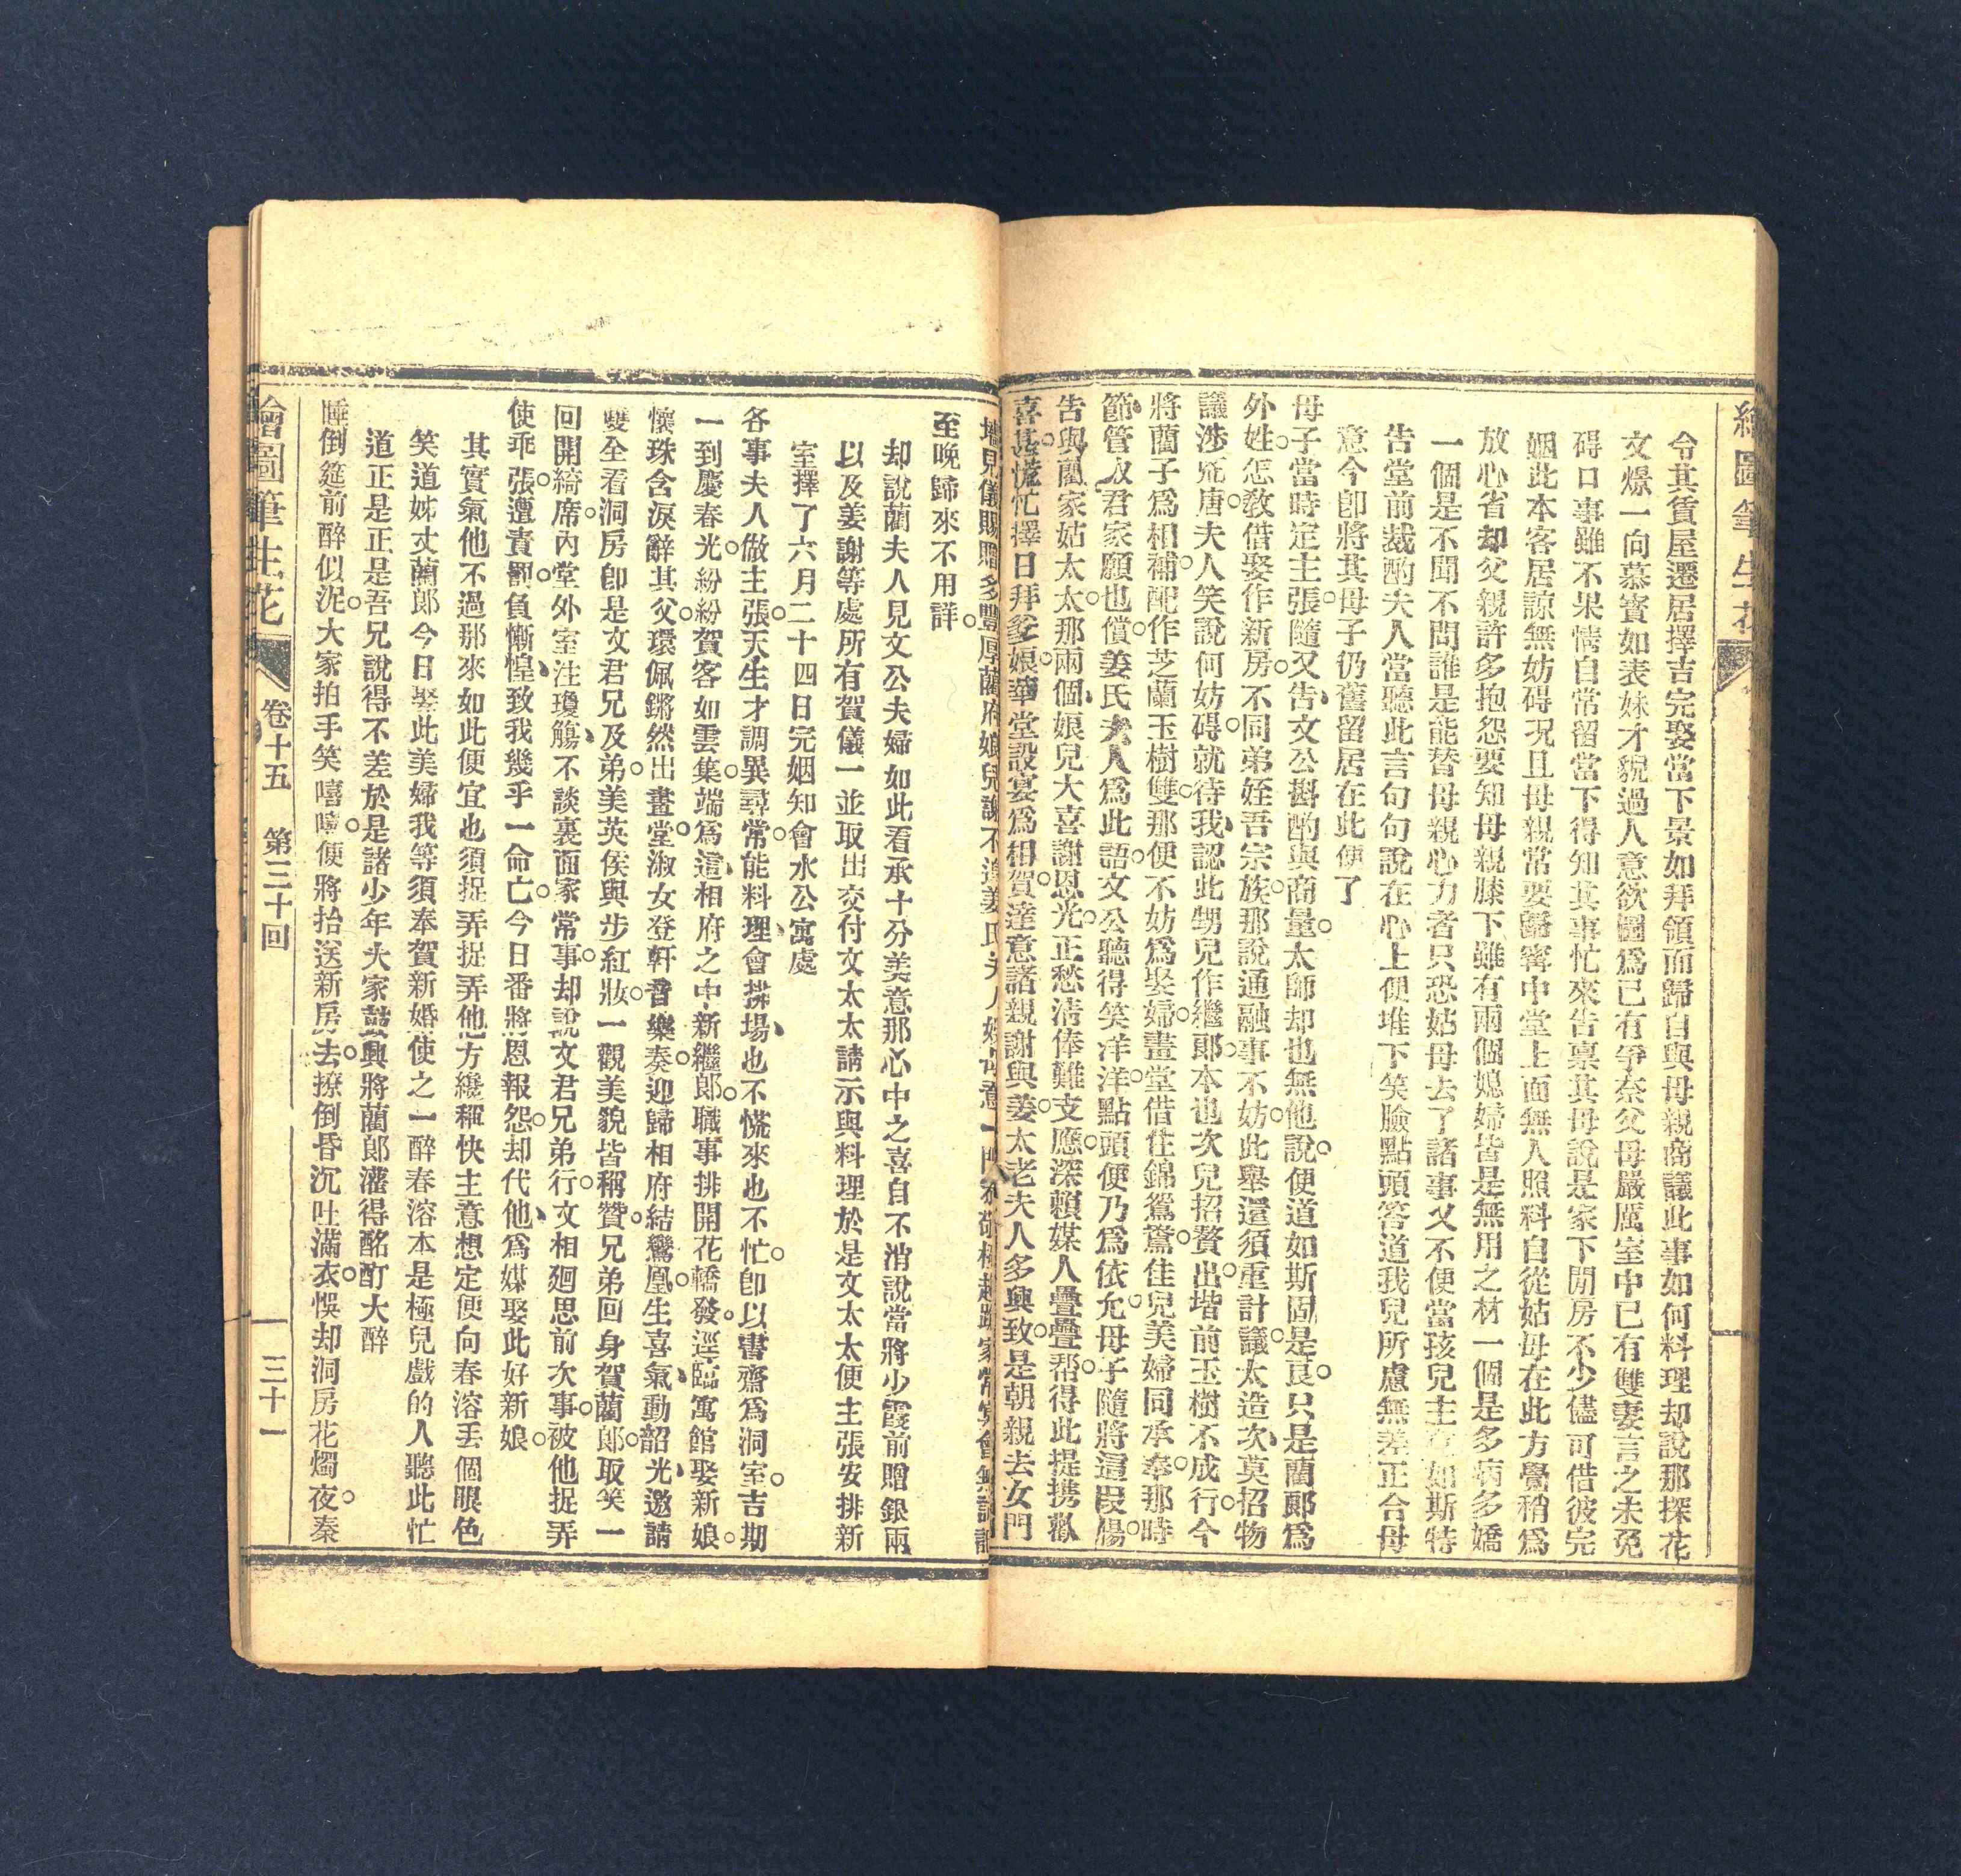 繪圖筆生花
令其賃屋遷居擇吉完娶當下景如拜領而歸自與母親商議此事如何料理却說那探花
文燝一向慕賓如表妹才貌過人意欲圖爲已有爭奈父母嚴厲室中已有雙妻言之未免
碍口事雖不果情自常留當下得知其事忙來告稟其母說是家下閒房不少儘可借彼完
姻此本客居諒無妨碍况且母親常要歸寗中堂上面無人照料自從姑母在此方覺稍爲
放心省却父親許多抱怨要知母親膝下雖有兩個媳婦皆是無用之材一個是多病多嬌
一個是不聞不問誰是能替母親心力者只恐姑母去了諸事又不便當孩兒主 如斯特
告堂前裁酌夫人當聽此言句句說在心上便堆下笑臉點頭答道我兒所慮無差正合母
意今卽將其母子仍舊留居在此便了
母子當時定主張隨又告文公斟酌與商量太師却也無他說便道如斯固是良只是藺郞爲
外姓怎敎借娶作新房不同弟姪吾宗族那說通融事不妨此舉還須重計議太造次莫招物
議涉荒唐夫人笑說何妨碍就待我認此甥兒作繼郞本也次兒招贅出堦前玉樹不成行今
將藺子爲相補配作芝蘭玉樹雙那便不妨爲娶婦畫堂借住錦鴛鴦佳兒美婦同承奉那時
節管教君家願也償姜氏夫人爲此語文公聽得笑洋洋點頭便乃爲依允母子隨將這段腸
告與藺家姑太太那兩個娘兒大喜謝恩光正愁淸俸難支應深賴媒人疊疊帮得此提携歡
喜甚慌忙擇日拜爹娘華堂設宴爲相賀達意諸親謝與姜太老夫人多興致是朝親去女門
至晚歸來不用詳
却說藺夫人見文公夫婦如此看承十分美意那心中之喜自不消說當將少霞前贈銀兩
以及姜謝等處所有賀儀一並取出交付文太太請示與料理於是文太太便主張安排新
室擇了六月二十四日完姻知會水公寓處
各事夫人做主張天生才調異尋常能料理會排場也不慌來也不忙卽以書齋爲洞室吉期
一到慶春光紛紛賀客如雲集端爲這相府之中新繼郞職事排開花轎發逕臨寓館娶新娘
懷珠含淚辭其父環佩鏘然出畫堂淑女登軒音樂奏迎歸相府結鸞凰生喜氣動韶光邀請
雙全看洞房卽是文君兄及弟美英侯與步紅妝一觀美貌皆稱贊兄弟回身賀藺郞取笑一
回開綺席內堂外室注瓊觴不談裏面家常事却說文君兄弟行文相廻思前次事被他捉弄
使乖張遭責罰負慚惶致我幾乎一命亡今日番將恩報怨却代他爲媒娶此好新娘
其實氣他不過那來如此便宜也須捉弄捉弄他方纔稱快主意想定便向春溶丟個眼色
笑道姊丈藺郞今日娶此美婦我等須奉賀新婚使之一醉春溶本是極兒戲的人聽此忙
道正是正是吾兄說得不差於是諸少年大家鼓興將藺郞灌得酩酊大醉
睡倒筵前醉似泥大家拍手笑嘻嘻便將抬送新房去撩倒昏沉吐滿衣悞却洞房花燭夜秦
繪圖筆生花 卷十五 第三十回 三十一